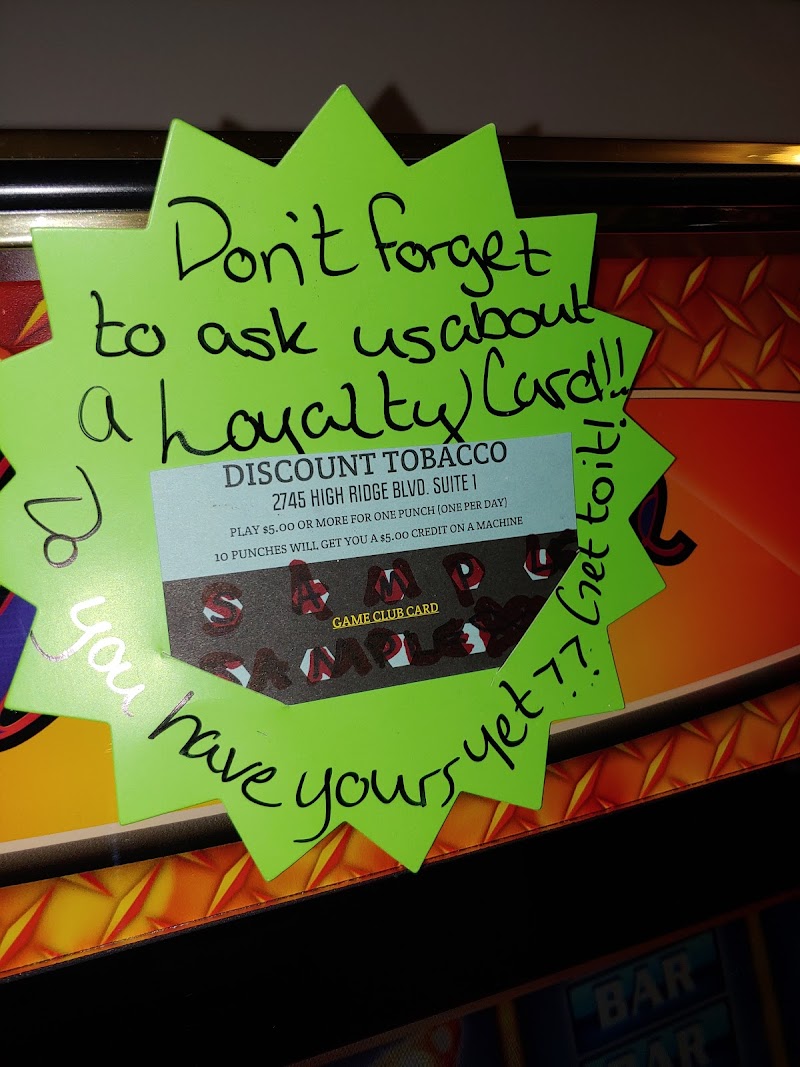 Don't forget
to ask us about
a Loyalty Card!!
DISCOUNT TOBACCO
2745 HIGH RIDGE BLVD. SUITE 1
PLAY $5.00 OR MORE FOR ONE PUNCH (ONE PER DAY)
10 PUNCHES WILL GET YOU A $5.00 CREDIT ON A MACHINE
SAMPLE
GAME CLUB CARD
SAMPLE
you have yours yet??
Get to it!
BAR
BAR